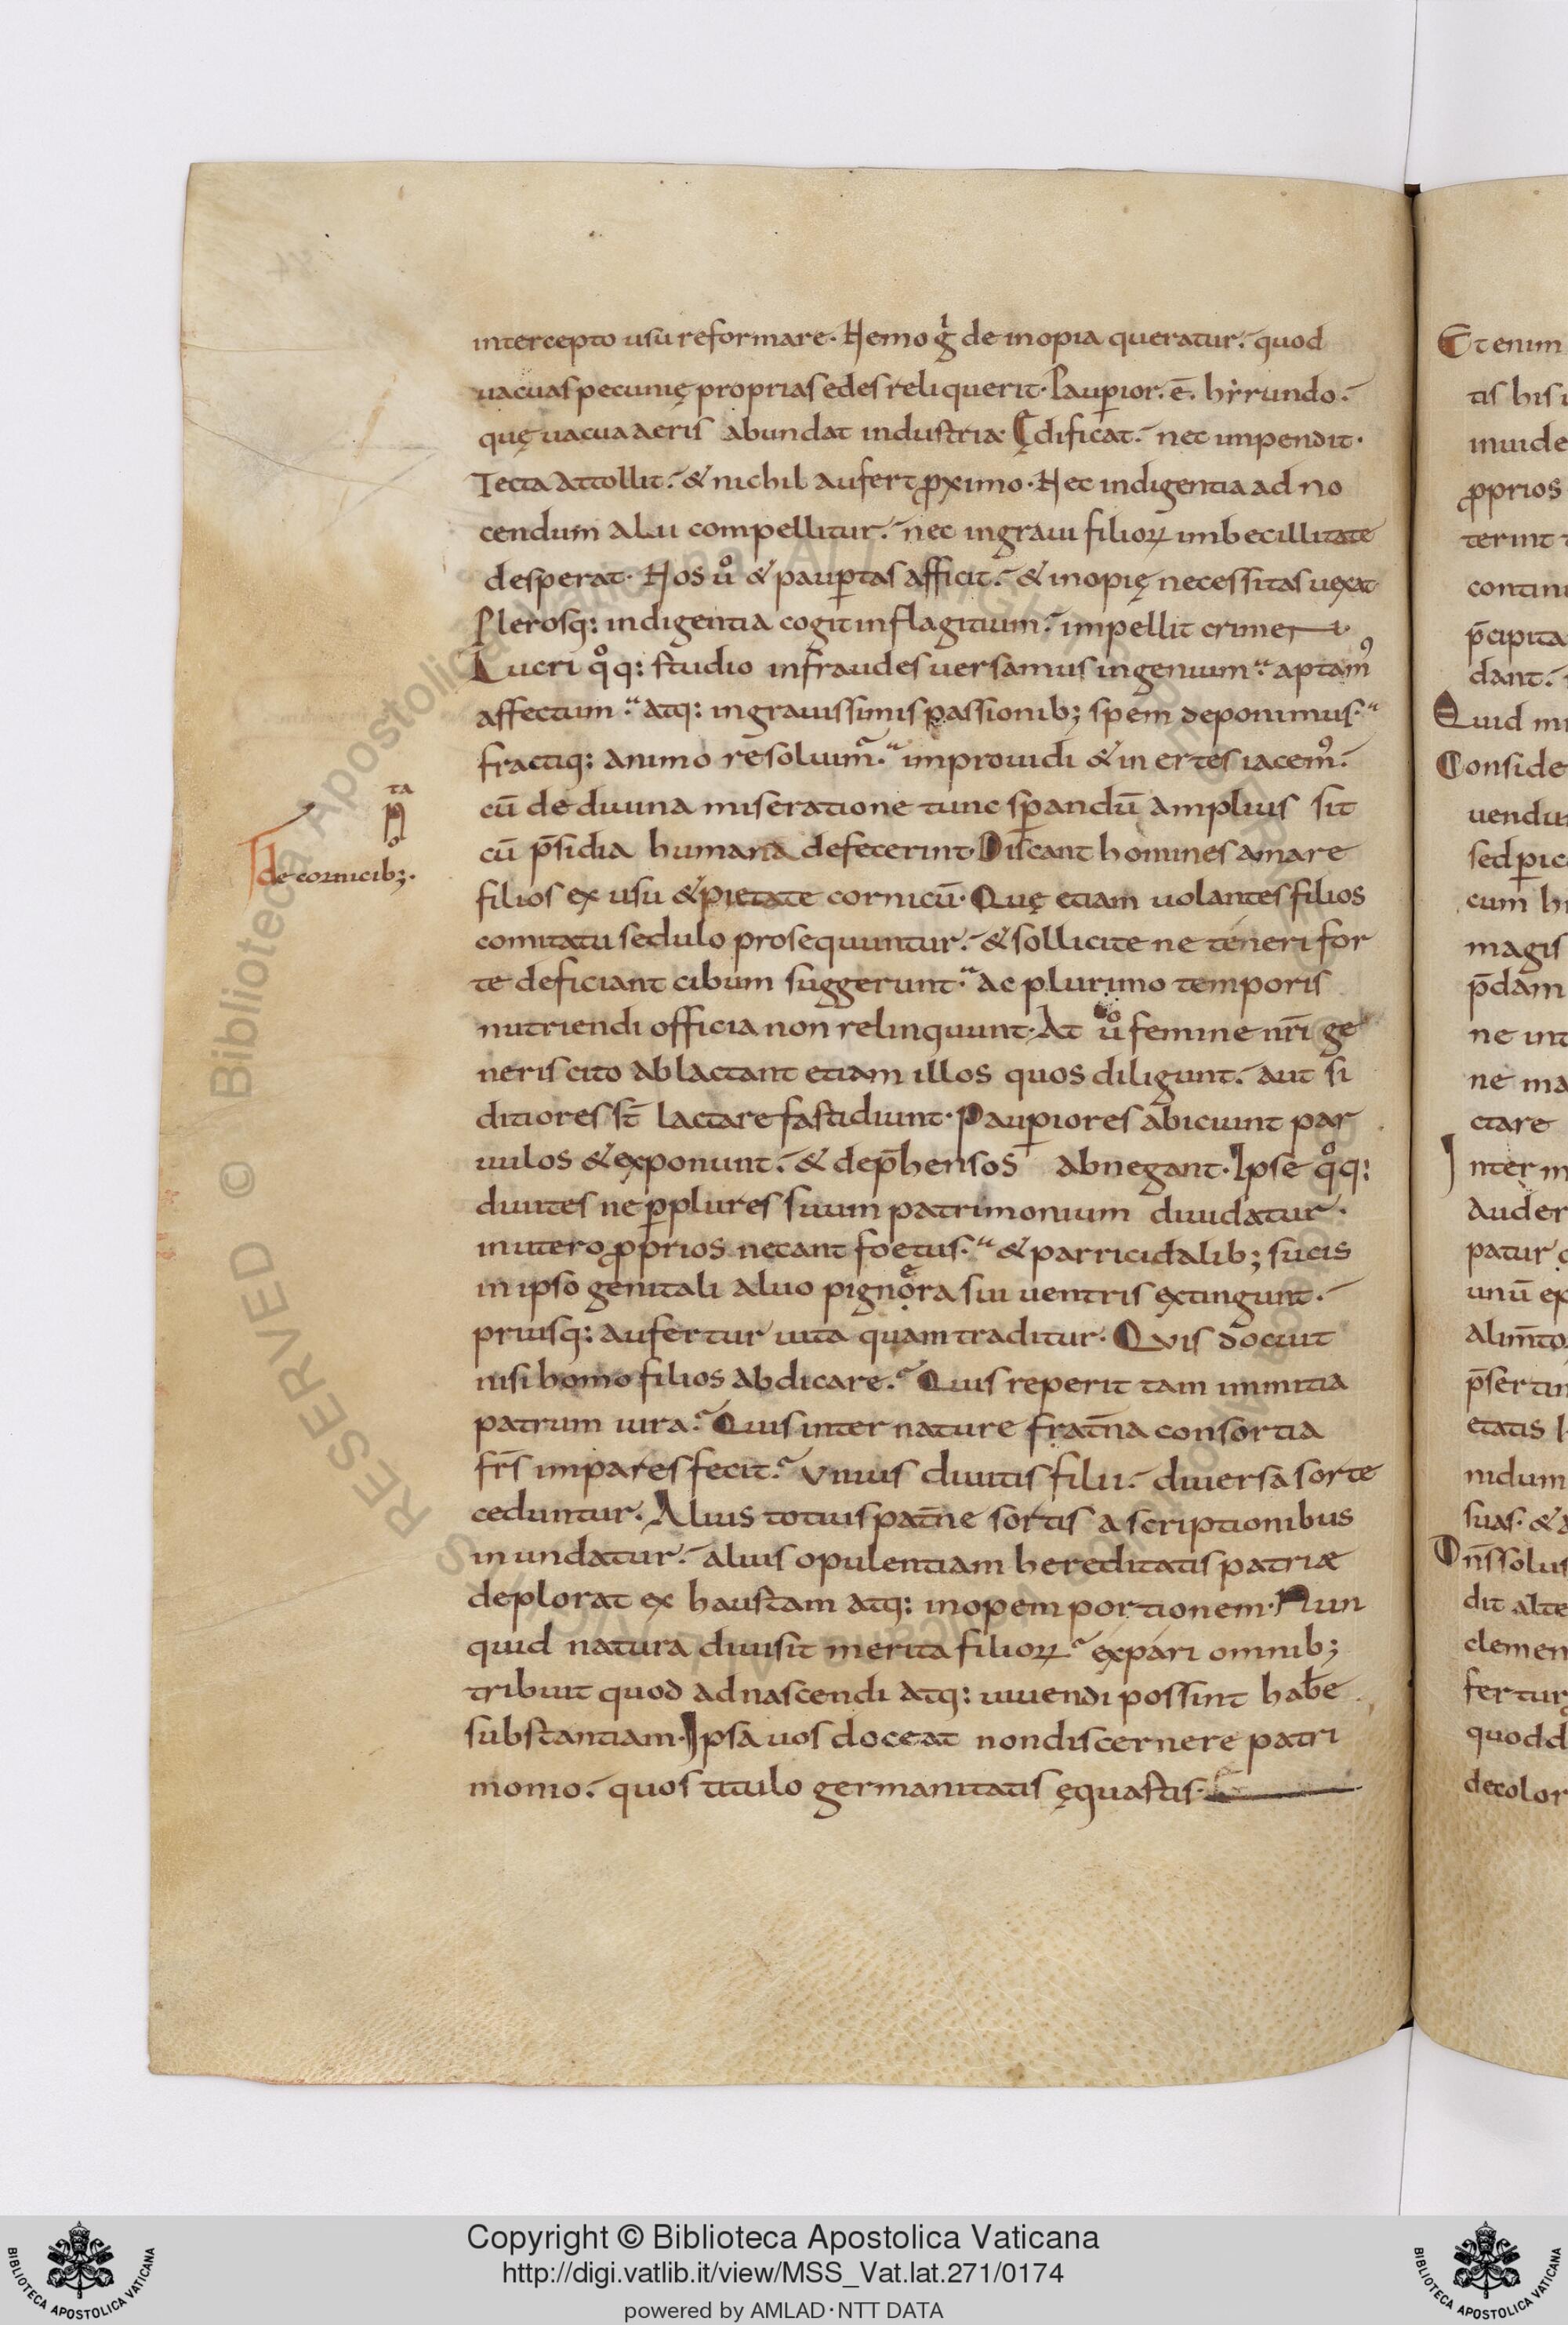 intercepto usu reformare. Nemo gͥ de inopia queratur. quod
uacuas pecunię proprias edes reliquerit. Pauꝑior. ē. hẏrundo.
quę uacua aeris abundat industria. Ędificat. nec inpendit.
Tecta attollit. & nichil aufert ꝓximo. Nec indigentia ad no
cendum alii compellitur. nec in graui filioꝝ imbecillitate
desperat. Nos uͦ & pauꝑtas afficit. & inopię necessitas uexat
Plerosq: indigentia cogit in flagitium. impellit crimen.
Lucri qͦq: studio in fraudes uersamus ingenium. aptamꝰ
affectum. atq: in grauissimis passionib; spem deponimus.
fractiq: animo resoluimᷣ. improuidi & inertes iacemꝰ.
cū de diuina miseratione tunc sꝑandū amplius sit
cū p̄sidia humana defecerint. Discant homines amare
filios ex usu & pietate cornicū. Quę etiam uolantes filios
comitatu sedulo prosequuntur. & sollicite ne teneri for
te deficiant cibum suggerunt. ac plurimo temporis
nutriendi officia non relinquunt. At uͦ femine nr̄i ge
neris cito ablactant etiam illos quos diligunt. aut si
ditiores st̄ lactare fastidiunt. Pauꝑiores abiciunt par
uulos & exponunt. & dep̄hensos abnegant. Ipse qͦq:
diuites ne ꝑ plures suum patrimonium diuidatur.
in utero ꝓprios necant foetus. & parricidalib; sucis
in ipso genitali aluo pignoͤra sui uentris extingunt.
priusq: aufertur uita quam traditur. Quis docuit
nisi homo filios abdicare. Quis reperit tam immitia
patrum iura. Quis inter nature frat̄na consortia
fr̄s impares fecit. Vnius diuitis filii. diuersa sorte
ceduntur. Alius totius pat̄ne sortis ascriptionibus
inundatur. alius opulentiam hereditatis patriæ
deplorat exhaustam atq: inopem portionem. Nun
quid natura diuisit merita filioꝝ ex pari omnib;
tribuit quod ad nascendi atq: uiuendi possint hab̄e
substantiam. Ipsa uos doceat non discernere patri
monio. quos titulo germanitatis ęquastis.
ta
o
de cornicib;.
Et enim
tis his
inuide
ꝓprios
terint
contin
p̄cipita
dant.
Quid
Conside
uendu
sed ꝑ
cum
magis
p̄dam
ne int
ne ma
ctare
Inter
Auder
patur
unū
alim̄to
p̄sertim
etatis
nidum
suas. &
Dn̄s solus
dit alte
clemen
fertur
quod
decolor
Copyright © Biblioteca Apostolica Vaticana
http://digi.vatlib.it/view/MSS_Vat.lat.271/0174
powered by AMLAD·NTT DATA
BIBLIOTECA APOSTOLICA VATICANA
BIBLIOTECA APOSTOLICA VATICANA